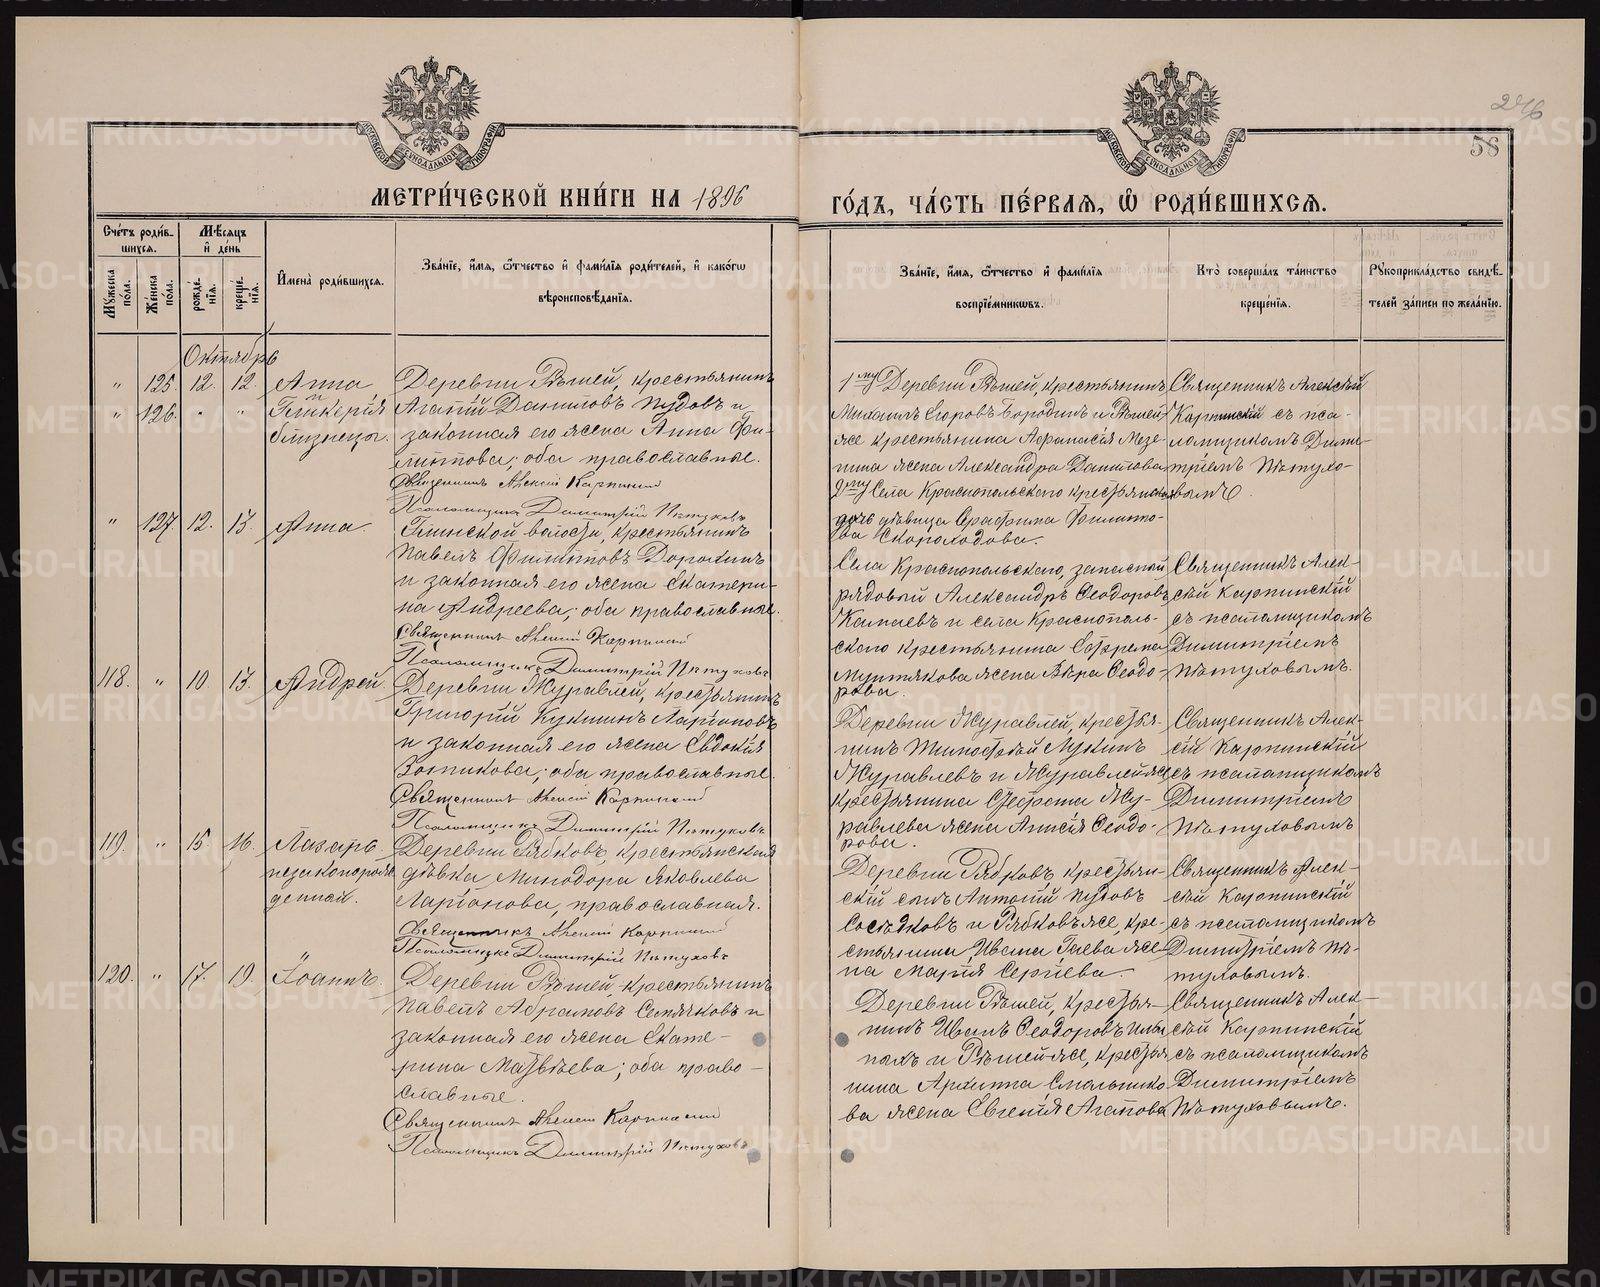 246
58
МЕТРИ́ЧЕСКОЙ КНИ́ГИ НА 1896
ГО́ДЪ, ЧА́СТЬ ПЕ́РВАѦ, Ѽ РОДИ́ВШИХСѦ.
Сче́тъ роди́в-
шихсѧ.
Мѣ́сѧцъ
и҆ де́нь
Мꙋ́жеска по́ла.
Же́нска по́ла.
рожде́-
нїѧ.
креще́-
нїѧ.
И҆мена̀ роди́вшихсѧ.
Зва́нїе, и҆́мѧ, ѻ҆́тчество и҆ фами́лїѧ роди́телей, и҆ како́гѡ
вѣроисповѣ́данїѧ.
Зва́нїе, и҆́мѧ, ѻ҆́тчество и҆ фами́лїѧ
воспрїе́мникѡвъ.
Кто̀ соверша́лъ та́инство
креще́нїѧ.
Рꙋкоприкла́дство свидѣ́-
телей за́писи по жела́нїю.
Октябрь
" 125 12. 12. Анна
" 126. " " и Гликерія
близнецы.
Деревни Рѣшей, крестьянинъ
Агапій Даниловъ Пудовъ и
законная его жена Анна Фи-
липпова; оба православные.
Священникъ Алексій Карпинскій
Псаломщикъ Димитрій Пѣтуховъ
1му Деревни Рѣшей, крестьянинъ
Михаилъ Егоровъ Бородинъ и Рѣшей
же крестьянина Афанасія Мезе-
нина жена Александра Данилова
2му Села Краснопольскаго крестьянская
дочь дѣвица Серафима Филиппо-
ва Скороходова.
Священникъ Алексѣй
Карпинскій съ пса-
ломщикомъ Дими-
тріемъ Пѣтухо-
вымъ.
" 127 12. 13. Анна
Глинской волости, крестьянинъ
Павелъ Филипповъ Дорохинъ
и законная его жена Екатери-
на Андреева; оба православные.
Священникъ Алексій Карпинскій
Псаломщикъ Димитрій Пѣтуховъ
Села Краснопольскаго, запасной
рядовый Александръ Ѳеодоровъ
Копаевъ и села Краснополь-
скаго крестьянина Софрона
жена Вѣра Ѳеодо-
рова.
Священникъ Алек-
сѣй Карпинскій
съ псаломщикомъ
Димитріемъ
Пѣтуховымъ.
118. " 10 13. Андрей.
Деревни Журавлей, крестьянинъ
Григорій Кукшинъ Ларіоновъ
и законная его жена Евдокія
оба православные.
Священникъ Алексій Карпинскій
Псаломщикъ Димитрій Пѣтуховъ
Деревни Журавлей, крестья-
нинъ Тимофей Лукинъ
Журавлевъ и Журавлей же
крестьянина Жу-
равлева жена Анисія Ѳеодо-
рова.
Священникъ Алек-
сій Карпинскій
съ псаломщикомъ
Димитріемъ
Пѣтуховымъ
119. " 15. 16. Лазарь
незаконорож-
денный.
Деревни Рябковъ, крестьянская
дѣвка, Минодора Яковлева
Ларіонова, православная.
Священникъ Алексій Карпинскій
Псаломщикъ Димитрій Пѣтуховъ
Деревни Рябковъ крестьян-
скій сынъ Антоній Пудовъ
Сосѣдковъ и Рябковъ же, кре-
стьянина, Ивана Гаева же-
на Марія Сергіева.
Священникъ Алек-
сѣй Карпинскій
съ псаломщикомъ
Димитріемъ Пѣ-
туховымъ.
120. " 17. 19. Іоаннъ.
Деревни Рѣшей, крестьянинъ
Павелъ Абрамовъ Семячковъ и
законная его жена Екате-
рина Матвѣева; оба право-
славные.
Священникъ Алексій Карпинскій
Псаломщикъ Димитрій Пѣтуховъ
Деревни Рѣшей, крестья-
нинъ Иванъ Ѳеодоровъ Илъи
ныхъ и Рѣшей же, крестья
нина Архиппа Смольнико
ва жена Евгенія Агапова
Священникъ Алек-
сѣй Карпинскій
съ псаломщикомъ
Димитріемъ
Пѣтуховымъ.
METRIKI.GASO-URAL.RU